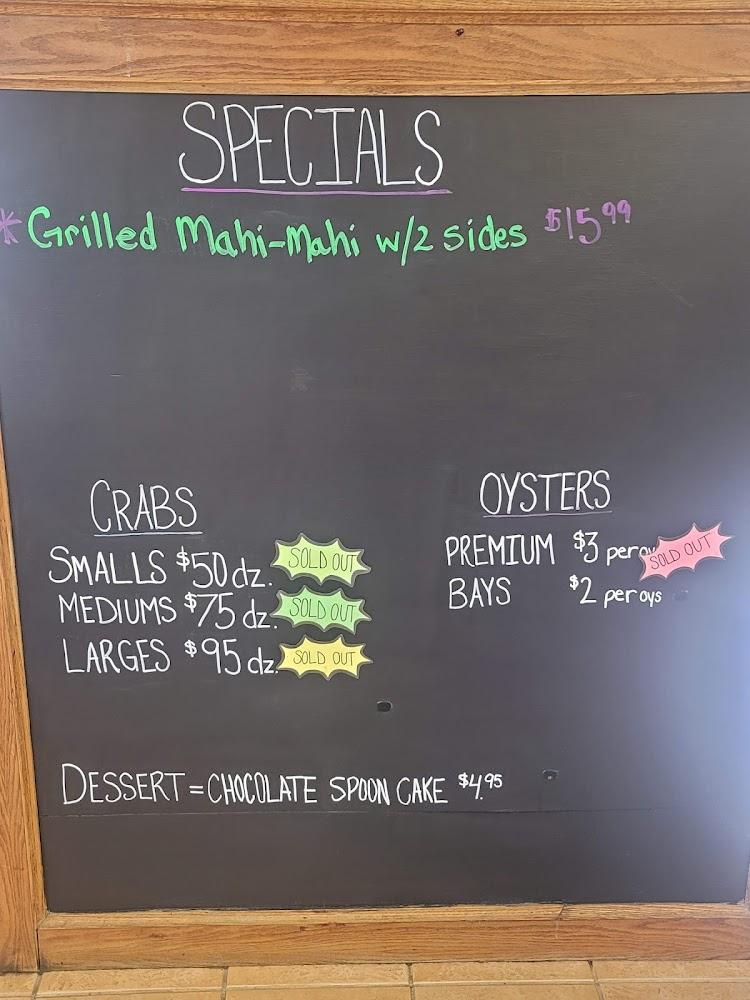 SPECIALS
* Grilled Mahi-Mahi w/2 sides $15.99
CRABS
SMALLS $50 dz. SOLD OUT
MEDIUMS $75 dz. SOLD OUT
LARGES $95 dz. SOLD OUT
OYSTERS
PREMIUM $3 per SOLD OUT
BAYS $2 per oys
DESSERT = CHOCOLATE SPOON CAKE $4.95